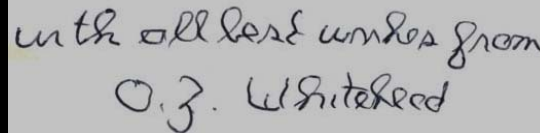 with all best wishes from
O.Z. Whitehead